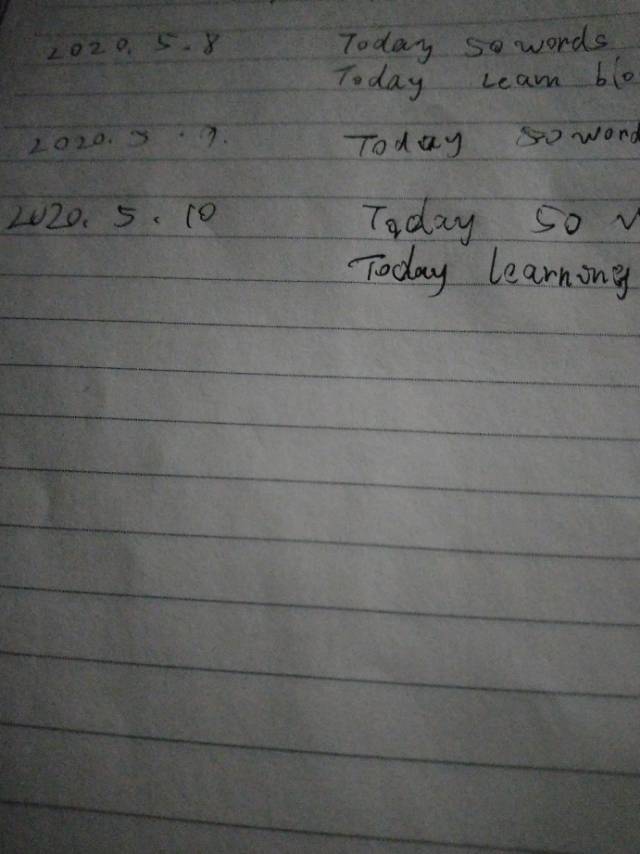 2020. 5. 8 Today 50 words
Today Learn blo
2020. 5. 9. Today 50 word
2020. 5. 10 Today 50
Today learning